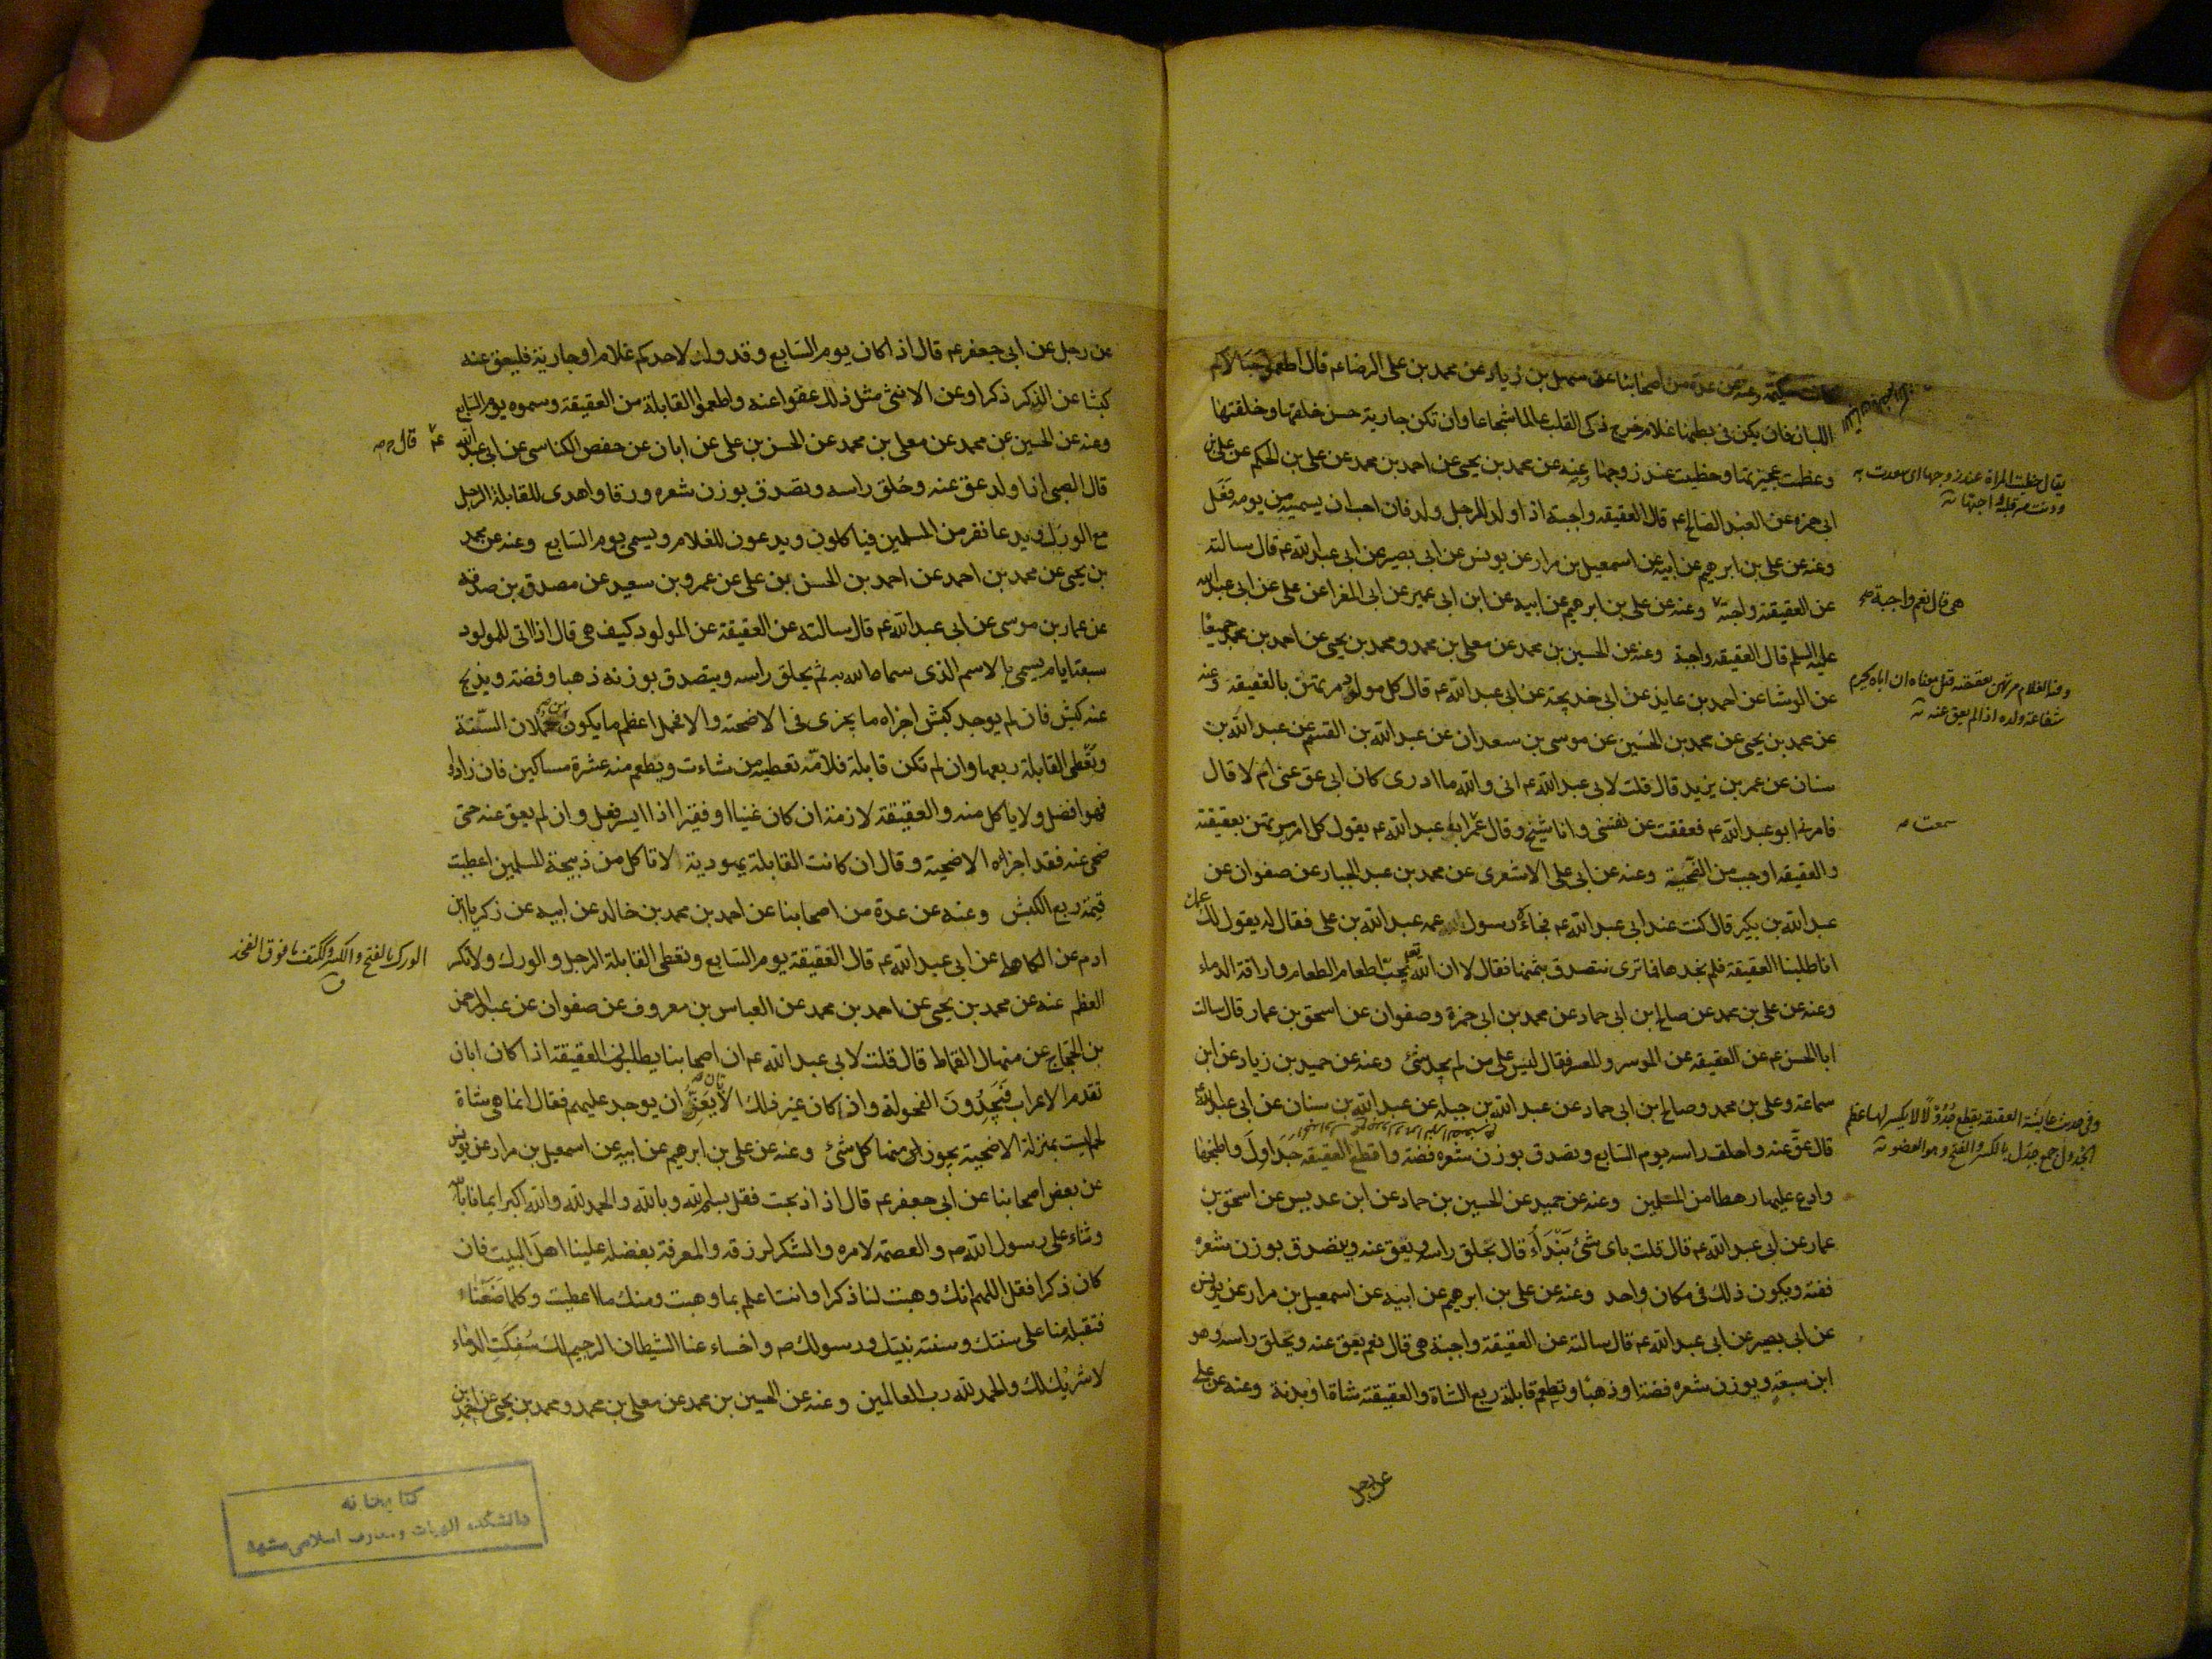 وعنه عن عدة من اصحابنا عن سهل بن زياد عن محمد بن على الرضا عم قال اطعموا حبالاكم
اللبان فان يكن فى بطنها غلام خرج ذكى القلب عالما شجاعا وان تكن جارية حسن خلقها وخلقتها
وعظمت عجيزتها وحظيت عند زوجها وعنه عن محمد بن يحيى عن احمد بن محمد عن على بن الحكم عن على بن
ابى حمزه عن العبد الصالح عم قال العقيقه واجبة اذا ولد للرجل ولد فان احب ان يسميه من يومه فعل
وعنه عن على بن ابرهيم عن ابيه عن اسمعيل بن مرار عن يونس عن ابى بصير عن ابى عبدالله عم قال سالته
عن العقيقة واجبة وعنه عن على بن ابرهيم عن ابيه عن ابن ابى عمير عن ابى المغرا عن على عن ابى عبدالله
عليه السلم قال العقيقه واجبة وعنه عن الحسين بن محمد عن معلى بن محمد ومحمد بن يحيى عن احمد بن محمد جميعا
عن الوشا عن احمد بن عايذ عن ابى خديجة عن ابى عبدالله عم قال كل مولود مرتهن بالعقيقه وعنه
عن محمد بن يحيى عن محمد بن الحسين عن موسى بن سعدان عن عبدالله بن القسم عن عبدالله بن
سنان عن عمر بن يزيد قال قلت لابى عبدالله عم انى والله ما ادرى كان ابى عق عنى ام لا قال
فامرنى ابو عبدالله عم فعققت عن نفسى وانا شيخ وقال عمر ابا عبدالله عم يقول كل امرء مرتهن بعقيقته
والعقيقه اوجب من الضحية وعنه عن ابى على الاشعرى عن محمد بن عبد الجبار عن صفوان عن
عبدالله بن بكير قال كنت عند ابى عبدالله عم فجاءه رسول عمه عبدالله بن على فقال له يقول لك عمك
انا طلبنا العقيقة فلم نجدها فما ترى نتصدق بثمنها فقال لا ان الله يحب اطعام الطعام واراقة الدماء
وعنه عن على بن محمد عن صالح ابن ابى حماد عن محمد بن ابى حمزة وصفوان عن اسحق بن عمار قال سالت
ابا الحسن عم عن العقيقه عن الموسر والمعسر فقال ليس على من لم يجد شئ وعنه عن حميد بن زياد عن ابن
سماعة وعلى بن محمد وصالح ابن ابى حماد عن عبدالله بن جبله عن عبدالله بن سنان عن ابى عبدالله
قال عق عنه واحلق راسه يوم السابع وتصدق بوزن شعره فضة واقطع العقيقه جداول واطبخها
وادع عليها رهطا من المسلمين وعنه عن حميد عن الحسين بن حماد عن ابن عديس عن اسحق بن
عمار عن ابى عبدالله عم قال قلت باى شئ نبدأ قال تحلق راسه ويعق عنه ويتصدق بوزن شعره
فضة ويكون ذلك فى مكان واحد وعنه عن على بن ابرهيم عن ابيه عن اسمعيل بن مرار عن يونس
عن ابى بصير عن ابى عبدالله عم قال سالته عن العقيقة واجبة هى قال نعم يعق عنه ويحلق راسه وهو
ابن سبعة ويوزن شعره فضة او ذهبا وتطعم قابلة ربع الشاة والعقيقة شاة او بدنة وعنه عن على
عن رجل
يقال حظيت المراة عند زوجها اى سعدت به
ودنت من قلبه واحبها
هى قال نعم واجبة صح
وفيه الغلام مرتهن بعقيقته قيل معناه ان اباه يحرم
شفاعة ولده اذا لم يعق عنه
سمعت
وفى حديث عايشة العقيقه يقطع جدولا لا يكسر لها عظم
الجدول جمع جدل بالكسر والفتح وهو العضو
عن رجل عن ابى جعفر عم قال اذا كان يوم السابع وقد ولد لاحدكم غلام او جارية فليعق عنه
كبشا عن الذكر ذكرا وعن الانثى مثل ذلك عقوا عنه واطعموا القابلة من العقيقة وسموه يوم السابع
وعنه عن الحسين عن محمد عن معلى بن محمد عن الحسن بن على عن ابان عن حفص الكناسى عن ابى عبدالله
قال الصبى اذا ولد عق عنه وحلق راسه وتصدق بوزن شعره ورقا واهدى للقابلة الرجل
مع الورك ويدعا نفر من المسلمين فياكلون ويدعون للغلام ويسمى يوم السابع وعنه عن محمد
بن يحيى عن محمد بن احمد عن احمد بن الحسن بن على عن عمرو بن سعيد عن مصدق بن صدقه
عن عمار بن موسى عن ابى عبدالله عم قال سالته عن العقيقة عن المولود كيف هى قال اذا اتى للمولود
سبعة ايام يسمى بالاسم الذى سماه الله به ثم يحلق راسه ويتصدق بوزنه ذهبا او فضة ويذبح
عنه كبش فان لم يوجد كبش اجزاه ما يجزى فى الاضحة والا فحمل اعظم ما يكون حملان السنة
وتعطى القابلة ربعها وان لم تكن قابلة فلامه تعطيه من شاءت وتطعم منه عشرة مساكين فان زادوا
فهو افضل ولا ياكل منه والعقيقة لازمة ان كان غنيا او فقيرا اذا ايسر فعل وان لم يعق عنه حتى
ضحى عنه فقد اجزاه الاضحية وقال ان كانت القابلة يهودية لا تاكل من ذبيحة المسلمين اعطيت
قيمة ربع الكبش وعنه عن عدة من اصحابنا عن احمد بن محمد بن خالد عن ابيه عن زكريا بن
ادم عن الكاهلى عن ابى عبدالله عم قال العقيقة يوم السابع وتعطى القابلة الرجل والورك ولا تكسر
العظم عنه عن محمد بن يحيى عن احمد بن محمد عن العباس بن معروف عن صفوان عن عبد الرحمن
بن الحجاج عن منهال القماط قال قلت لابى عبدالله عم ان اصحابنا يطلبون العقيقة اذا كان ابان
تقدم الاعراب فيجدون الفحولة واذا كان غير ذلك الابان لم يوجد عليهم فقال انما هى شاة
لحم ليست بمنزلة الاضحية يجوز منها كل شئ وعنه عن على بن ابرهيم عن ابيه عن اسمعيل بن مرار عن يونس
عن بعض اصحابنا عن ابى جعفر عم قال اذا ذبحت فقل بسم الله وبالله والحمد لله والله اكبر ايمانا بالله
وثناء على رسول الله ص والعصمة لامره والشكر لرزقه والمعرفة بفضله علينا اهل البيت فان
كان ذكرا فقل اللهم انك وهبت لنا ذكرا وانت اعلم بما وهبت ومنك ما اعطيت وكلما صنعناه
فتقبله منا على سنتك وسنة نبيك ورسولك ص واخساء عنا الشيطان الرجيم لك سفكت الدماء
لا شريك لك والحمد لله رب العالمين وعنه عن الحسين بن محمد عن معلى بن محمد ومحمد بن يحيى عن احمد بن
عم قال
الورك بالفتح والكسر وككتف ما فوق الفخذ
ق
كتابخانه
دانشكده الهيات و معارف اسلامى مشهد